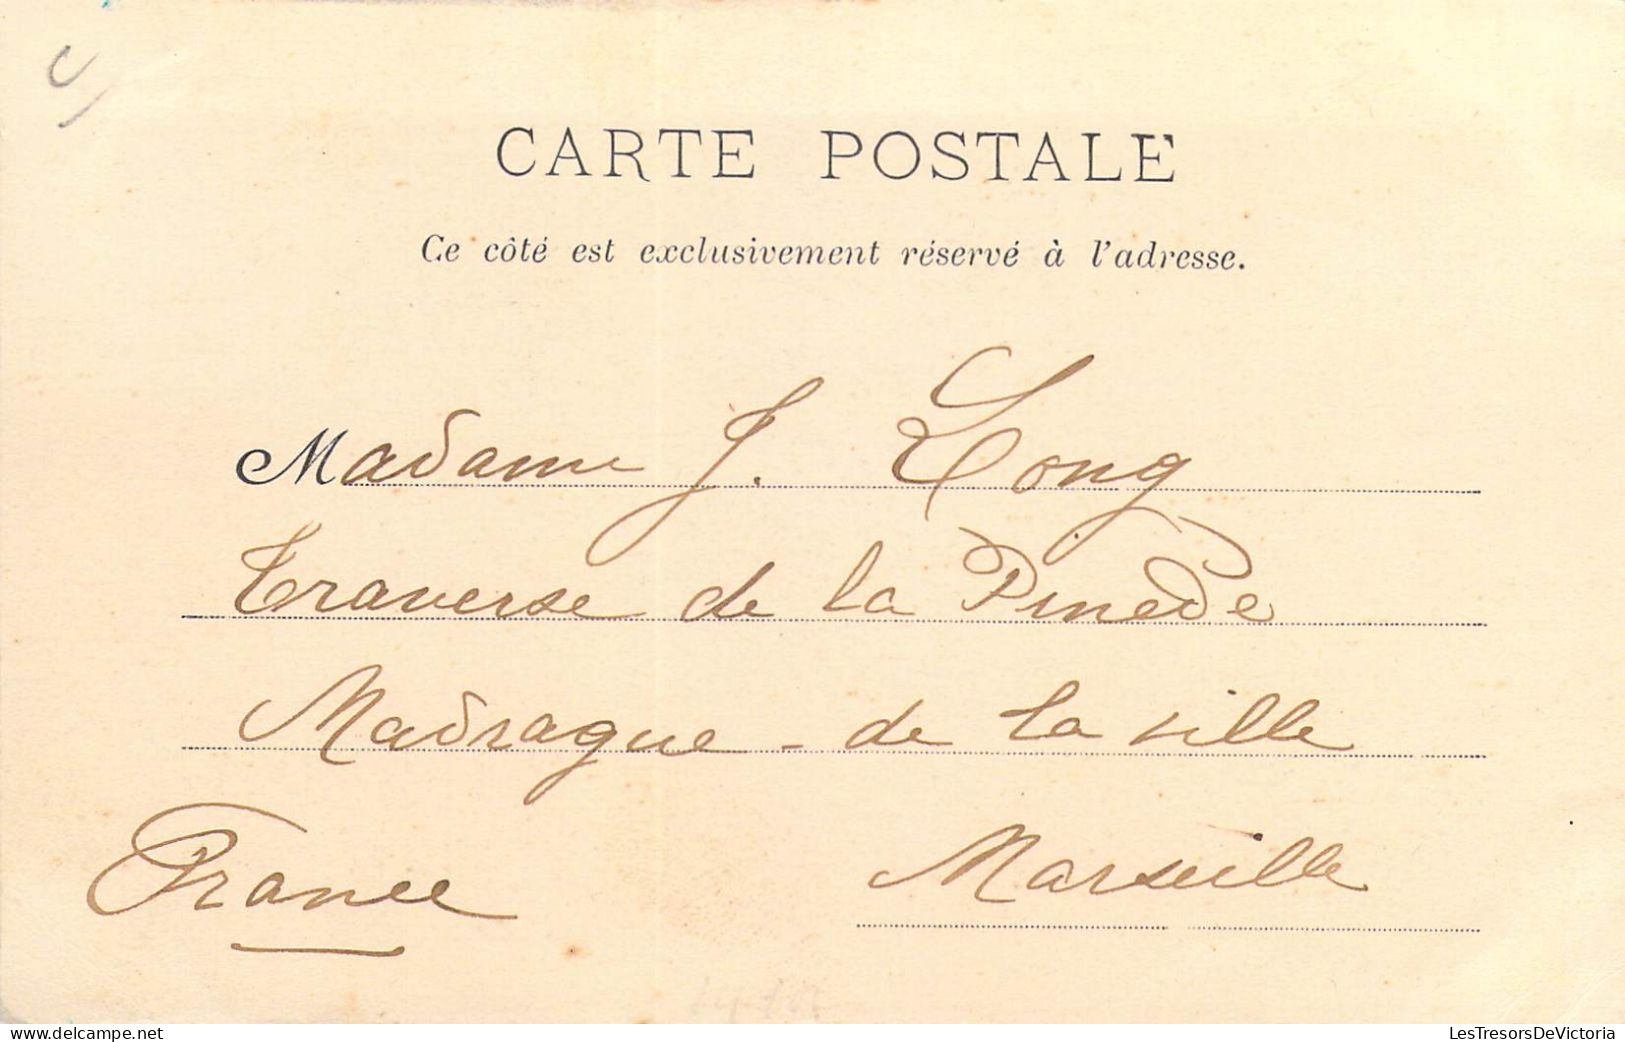 CARTE POSTALE
Ce côté est exclusivement réservé à l'adresse.
Madame J. Long
Traverse de la Pinède
Madrague - de la ville
Marseille
France
www.delcampe.net
LesTresorsDeVictoria